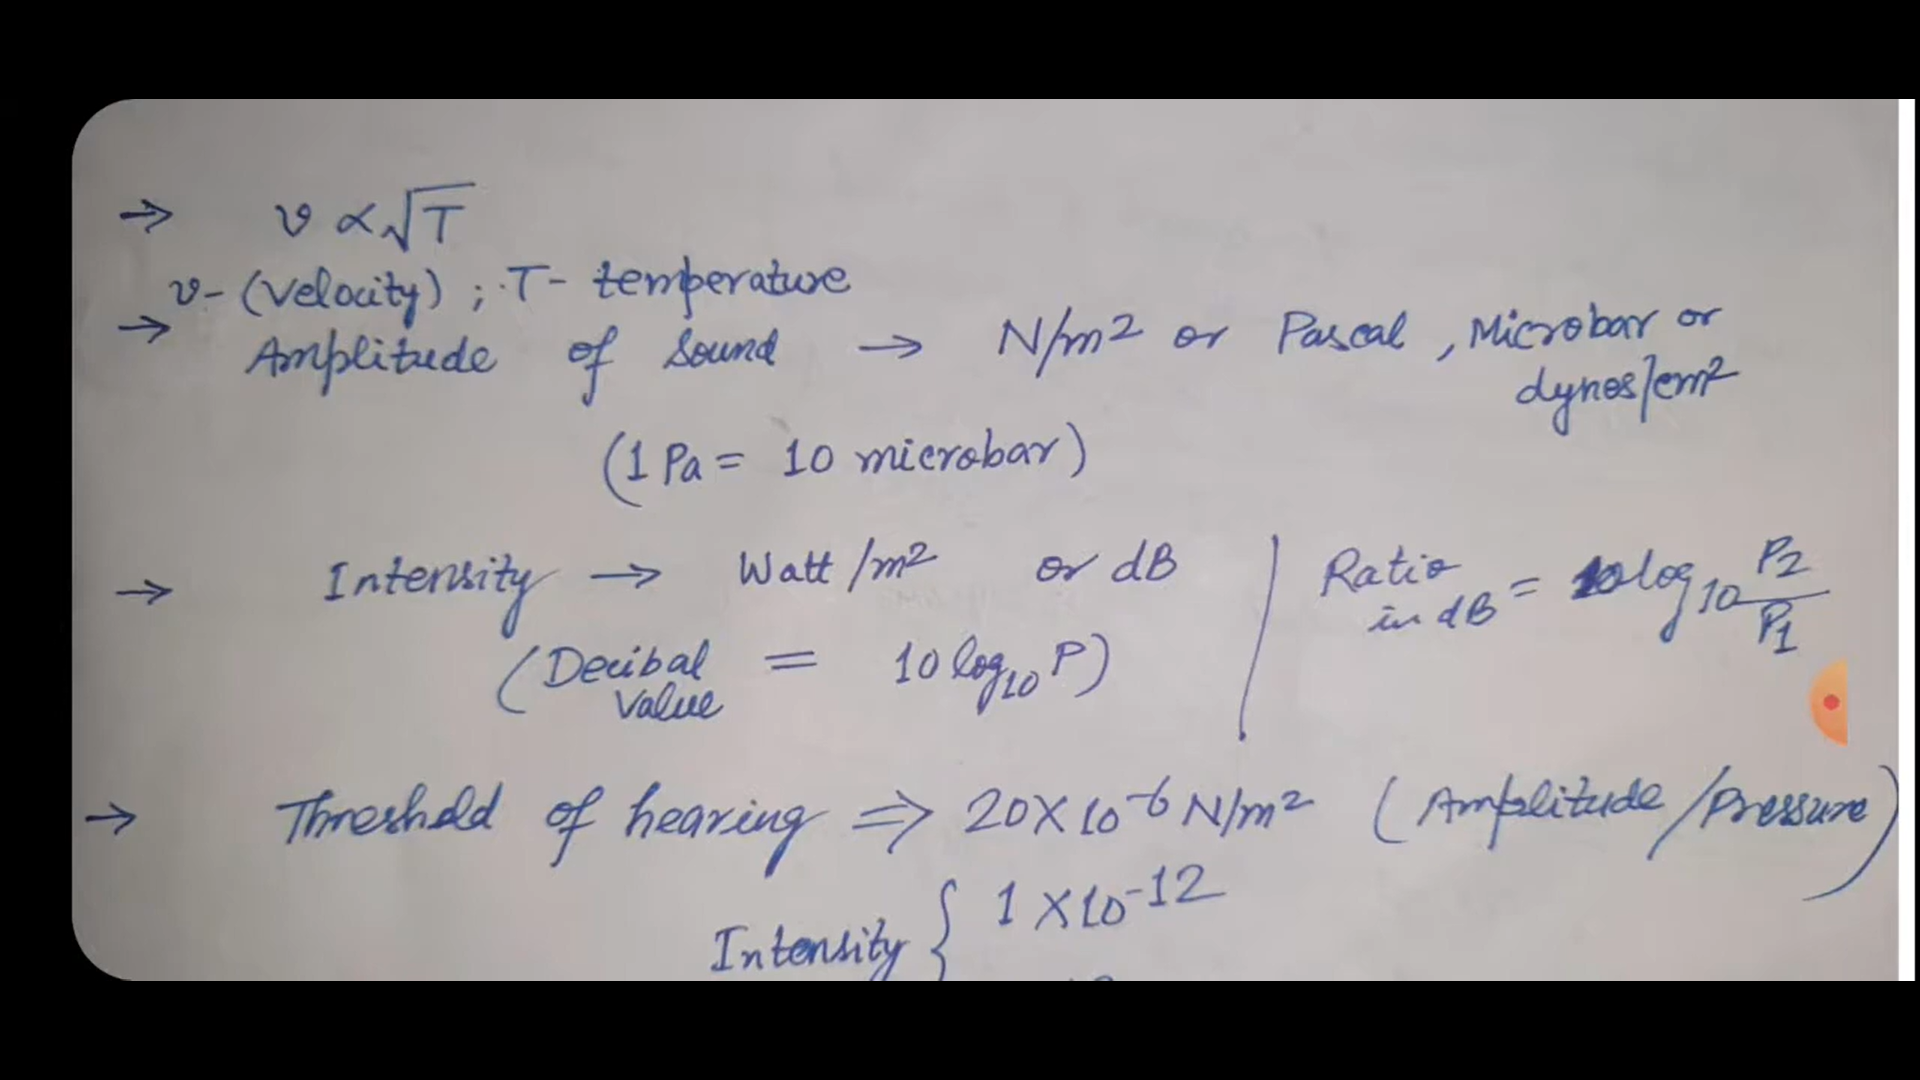 → v ∝ √T
v - (Velocity) ; T - temperature
→ Amplitude of Sound → N/m² or Pascal , Microbar or
dynes/cm²
(1 Pa = 10 microbar)
→ Intensity → Watt /m² or dB | Ratio in dB = 10 log₁₀ P2/P1
(Decibal Value = 10 log₁₀ P)
→ Threshold of hearing ⇒ 20 X 10⁻⁶ N/m² (Amplitude /Pressure)
Intensity { 1 X 10⁻¹²